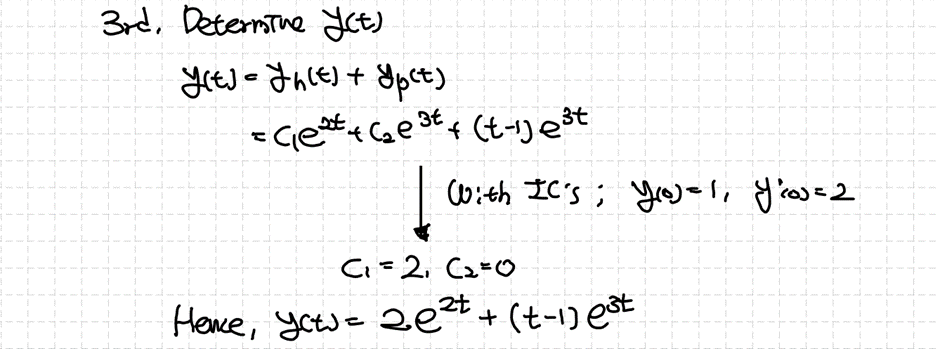 3rd. Determine y(t)
y(t) = y_h(t) + y_p(t)
= C₁e^{2t} + C₂e^{3t} + (t-1)e^{3t}
With IC's ; y(0)=1, y'(0)=2
C₁ = 2, C₂=0
Hence, y(t) = 2e^{2t} + (t-1)e^{3t}